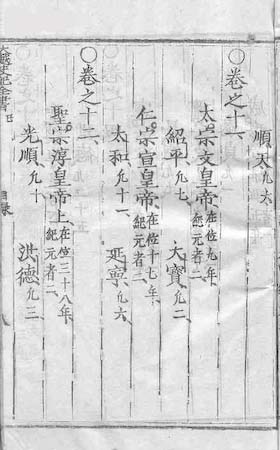 順天凡六
〇卷之十一
太宗文皇帝在位九年紀元者二
紹平凡七 大寶凡二
仁宗宣皇帝在位十七年紀元者二
太和凡十一 延寧凡六
〇卷之十二
聖宗淳皇帝上在位三十八年紀元者二
光順凡十 洪德凡三
大越史記全書 目录